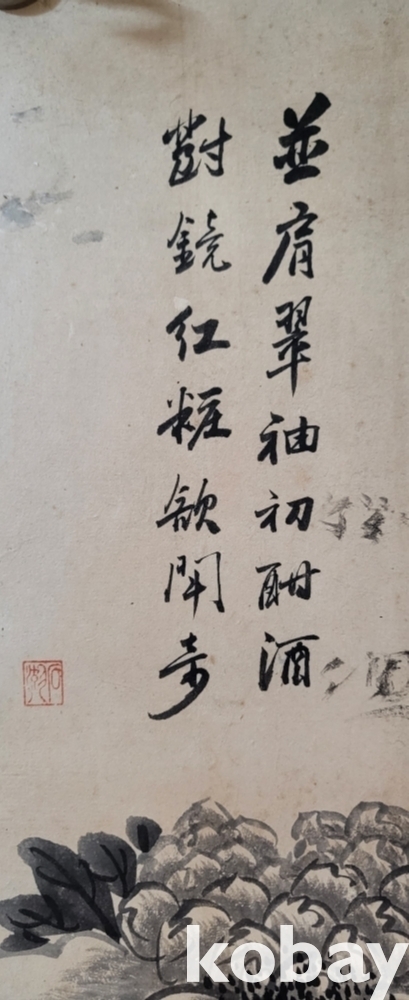 並肩翠袖初酣酒
對鏡紅粧欲開奇
kobay